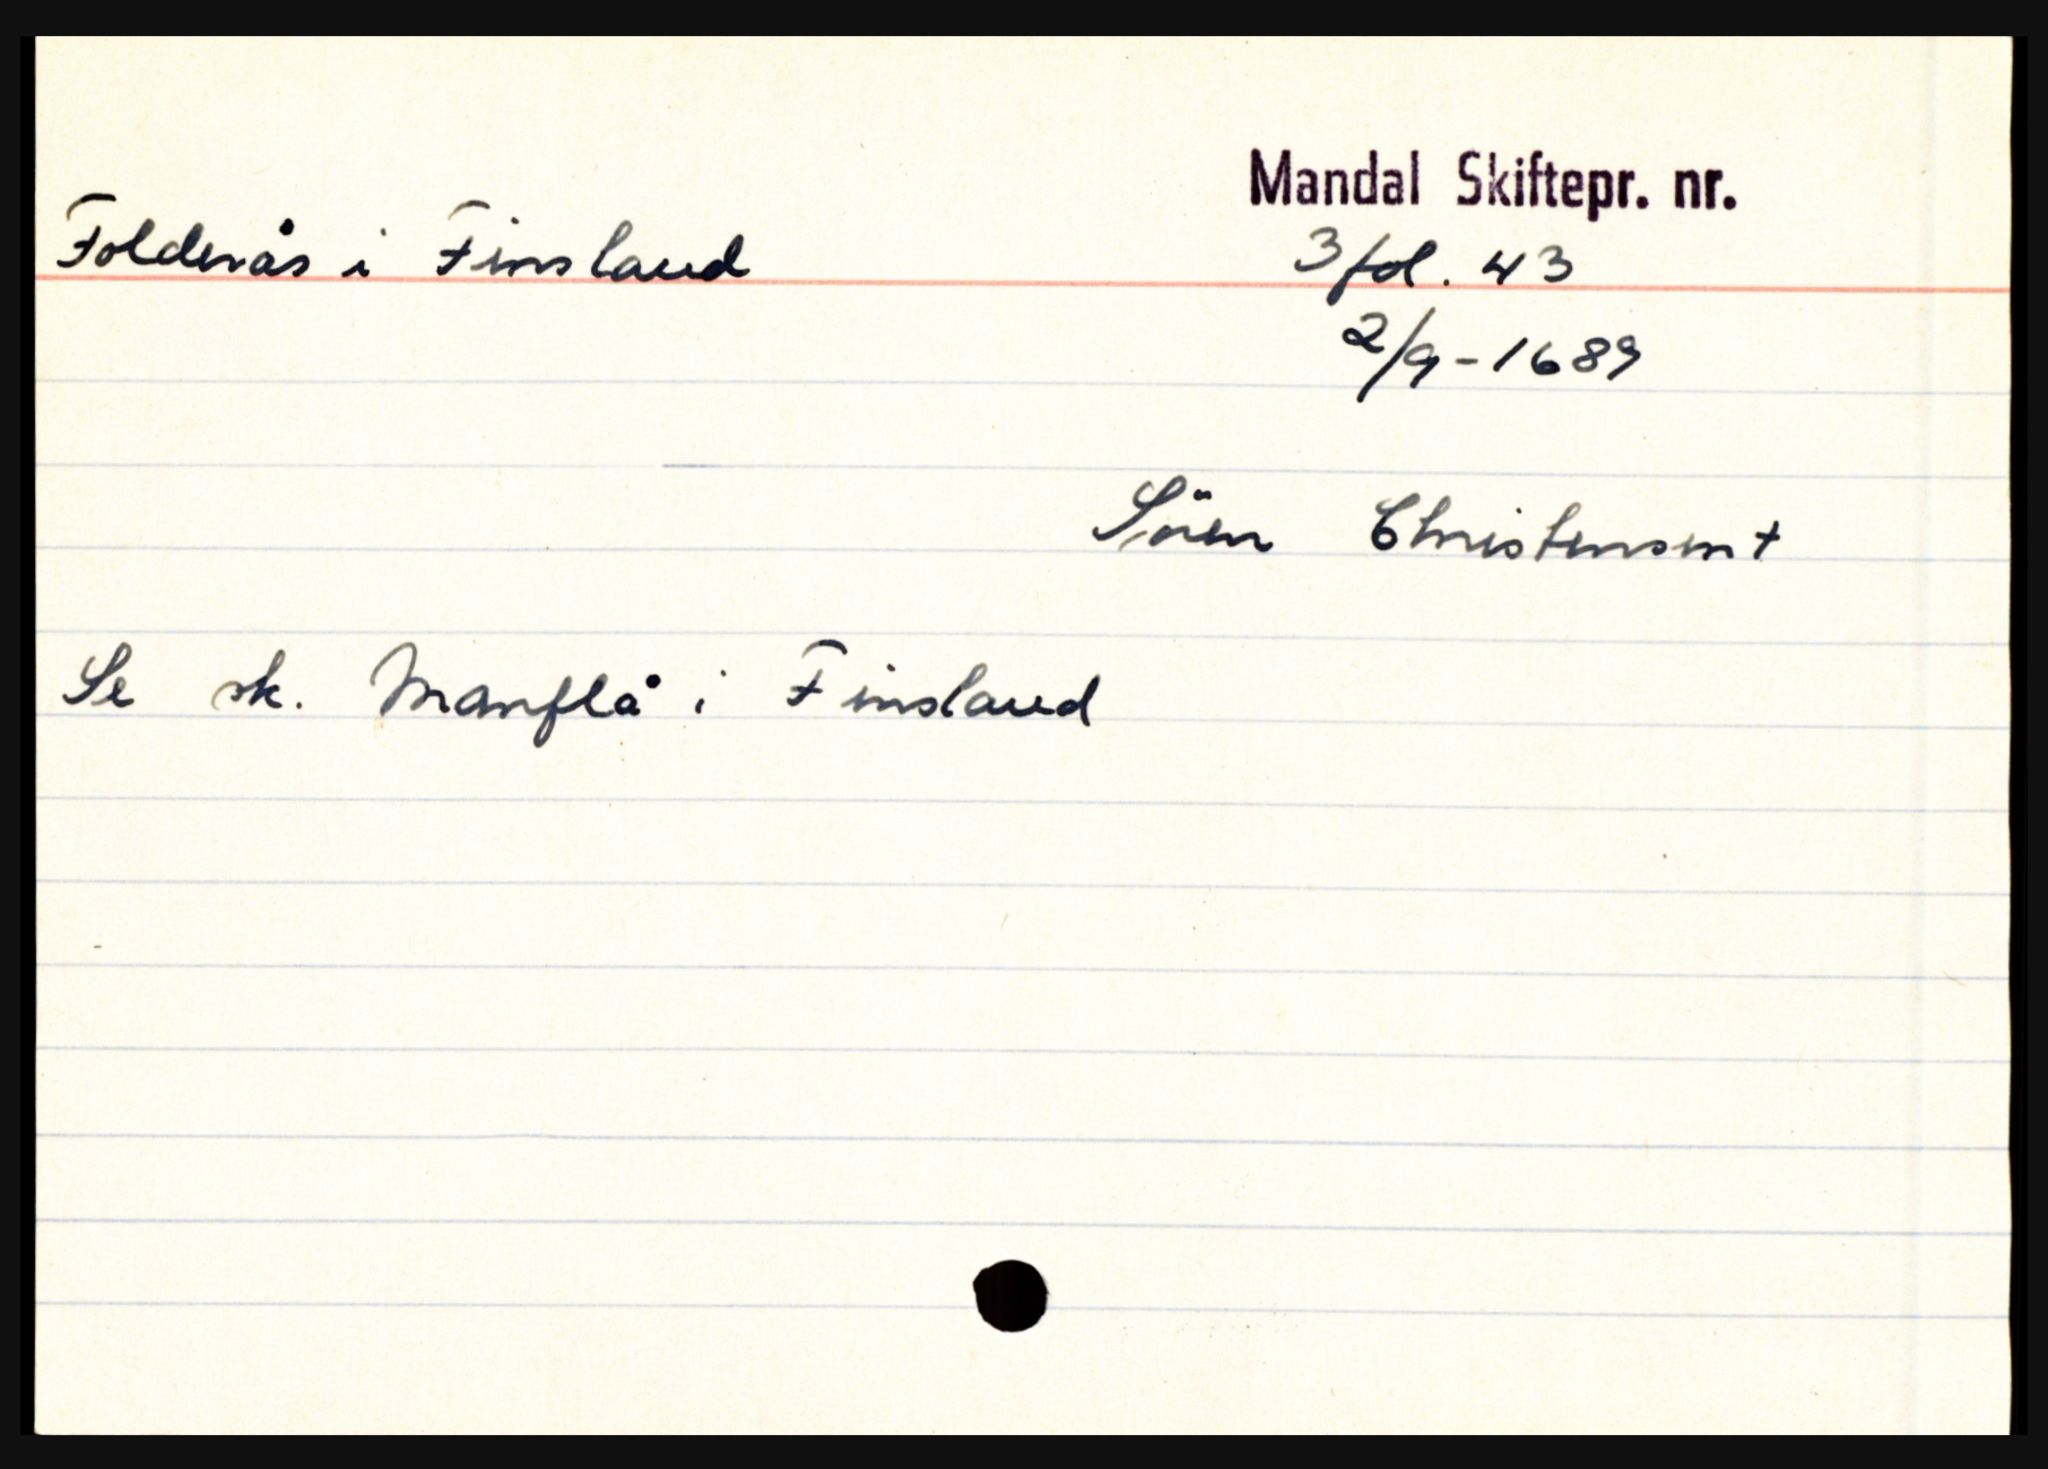 Mandal Skiftepr. nr.
Foldenås i Finsland 3 fol. 43
2/9-1689
Sören Christensen +
Se sk. Manflå i Finsland